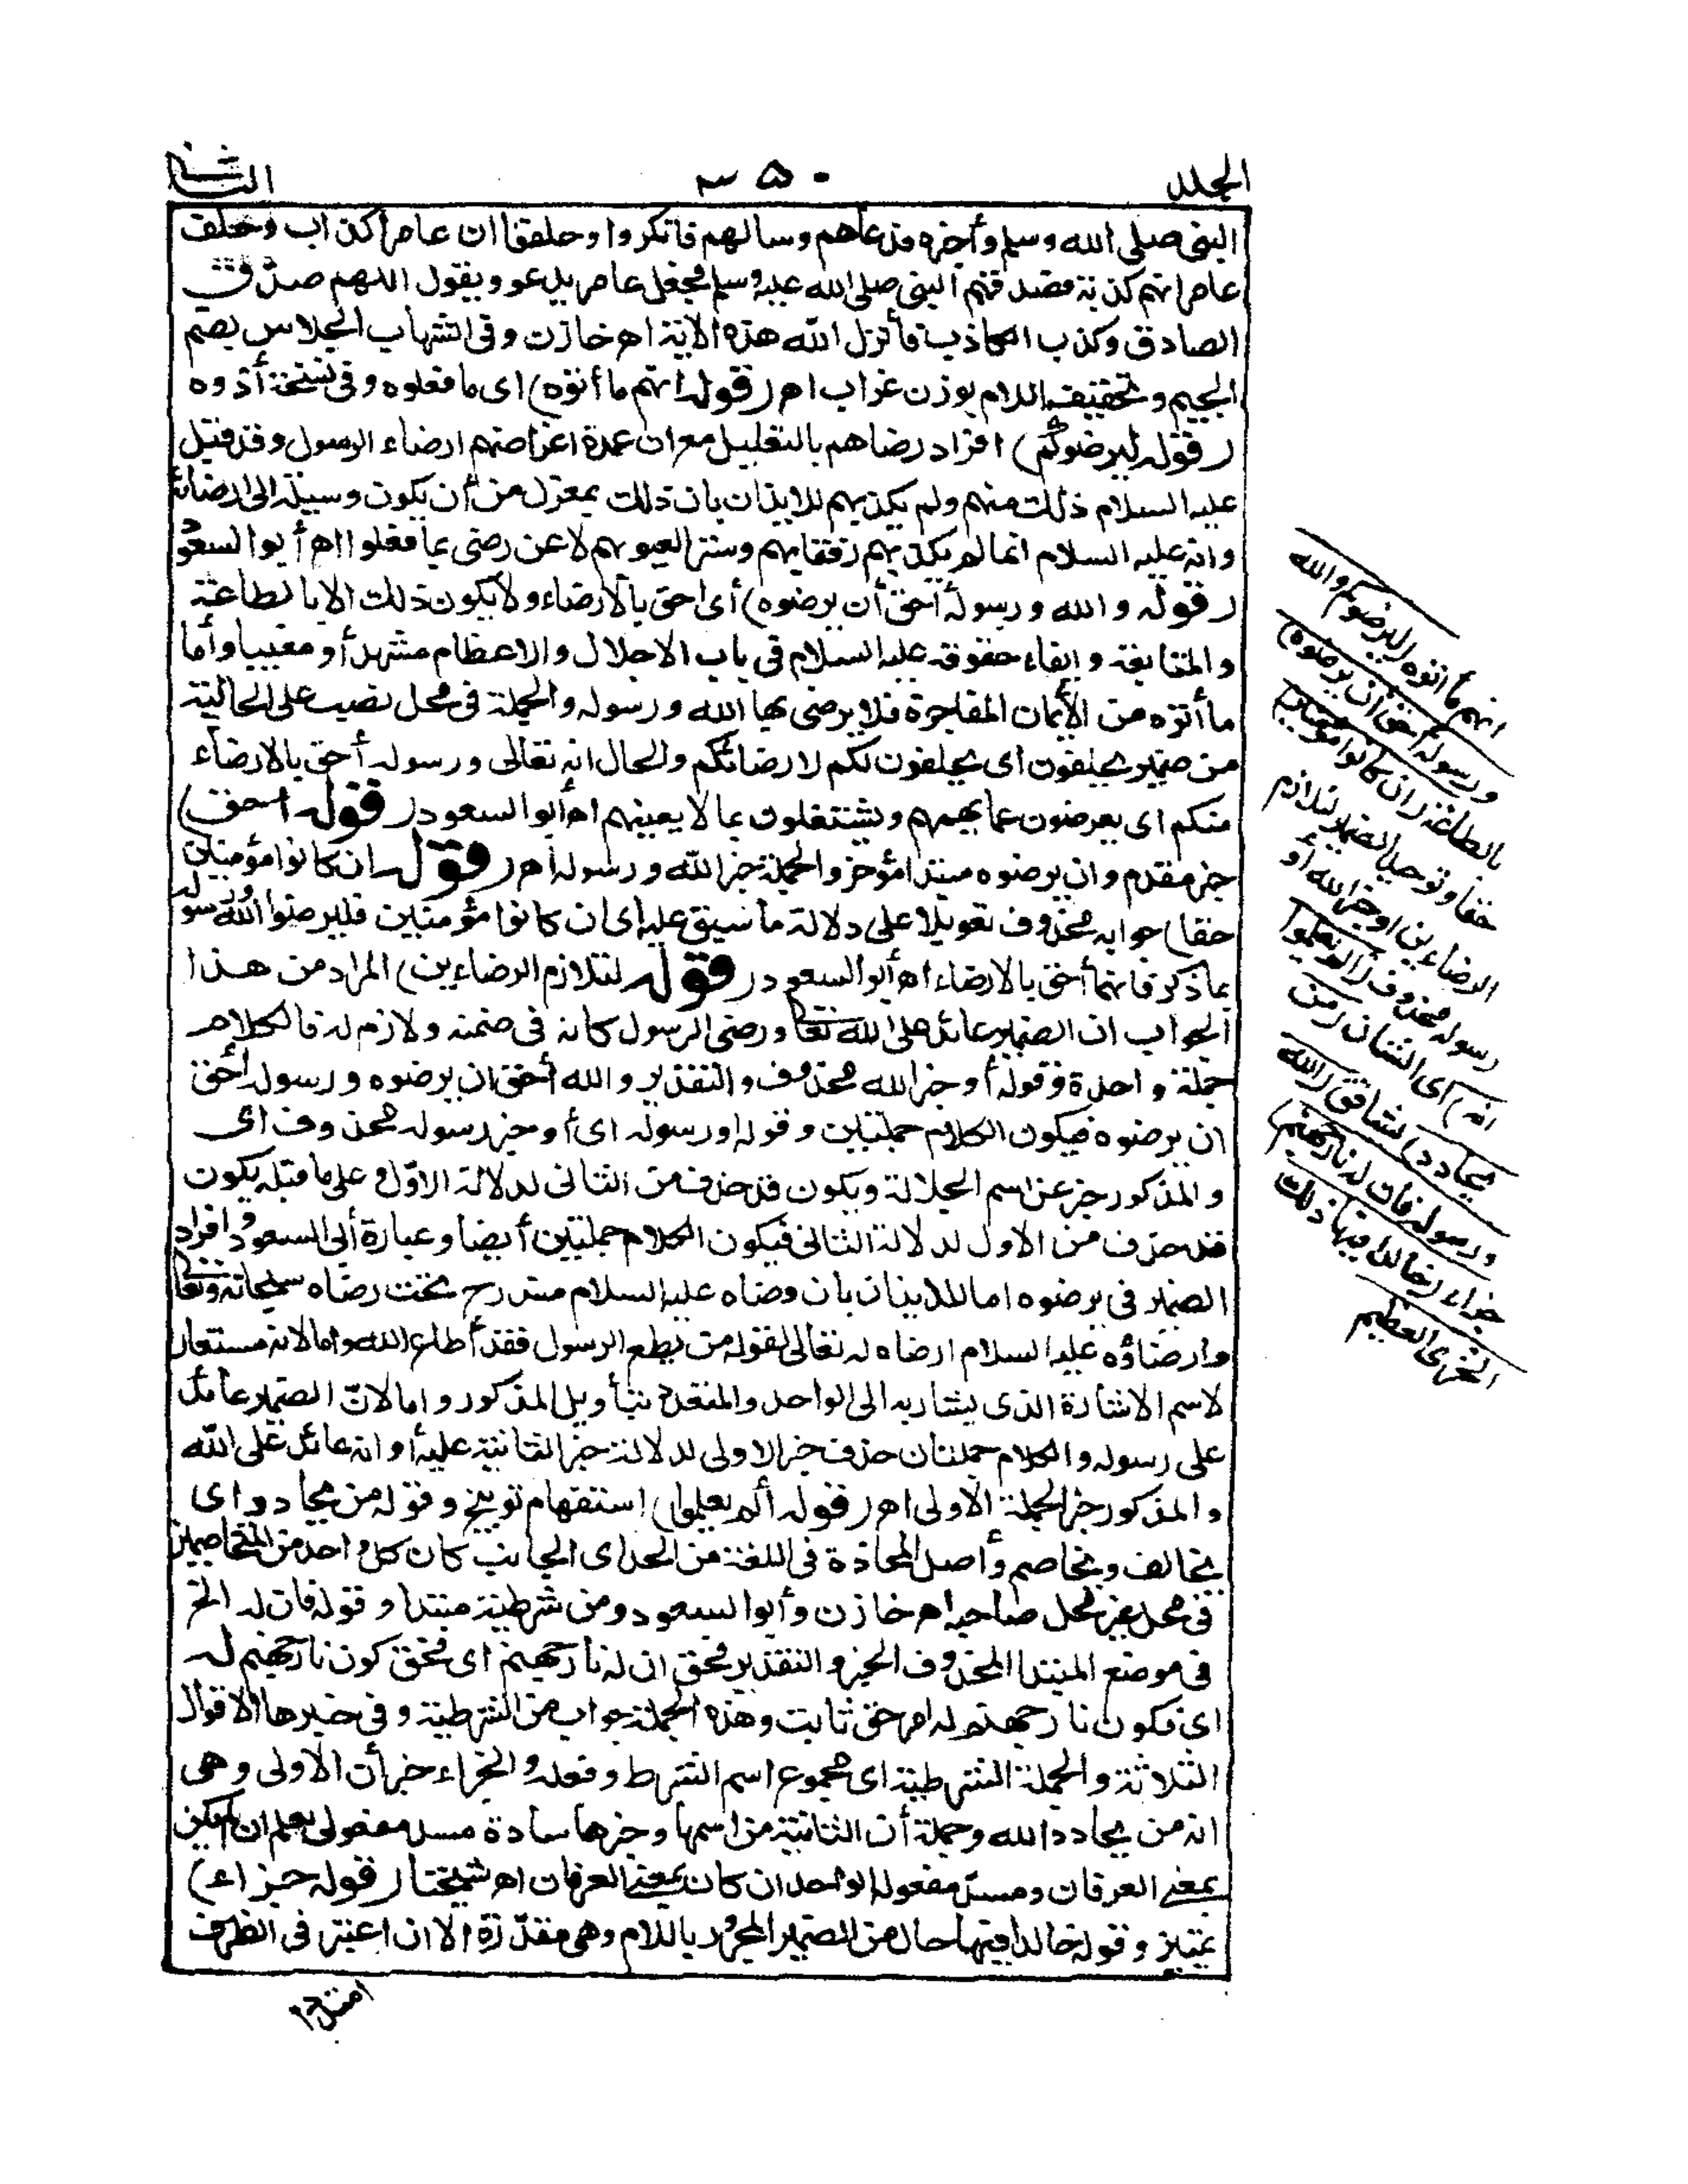 المجلد
٣٥٠
الثانى
النبى صلى الله وسلم وأخبره فدعاهم وسالهم فانكروا وحلفوا ان عامرا كذاب وحلف
عامر انهم كذبة فصدقهم النبى صلى الله عليه وسلم فجعل عامر يدعو ويقول اللهم صدّق
الصادق وكذب الكاذب فأنزل الله هذه الاية اهر خازن وفى الشهاب الجلاس بضم
الجيم وتخفيف اللام بوزن غراب اهر (قوله انهم ما أتوه) اى ما فعلوه وفى نسخة أذوه
(قوله ليرضوكم) افراد رضاهم بالتعليل مع ان عمدة اغراضهم ارضاء الرسول وقد قبل
عليه السلام ذلك منهم ولم يكذبهم للايذان بان ذلك بمعزل من أن يكون وسيلة الى ارضائه
وانه عليه السلام انما لم يكذبهم رفقا بهم وسترا لعيوبهم لا عن رضى بما فعلوا اهر أبو السعود
(قوله والله ورسوله أحق أن يرضوه) أى احق بالارضاء ولا يكون ذلك الا بالطاعة
والمتابعة وايفاء حقوقه عليه السلام فى باب الاجلال والاعظام مشهدا أو مغيبا وأما
ما أتوه من الأيمان الفاجرة فلا يرضى بها الله ورسوله والجملة فى محل نصب على الحالية
من ضمير يحلفون اى يحلفون لكم لارضائكم والحال انه تعالى ورسوله أحق بالارضاء
منكم اى يعرضون عما يهمهم ويشتغلون بما لا يعنيهم اهر أبو السعود (قوله احق)
خبر مقدم وان يرضوه مبتدا مؤخر والجملة خبر الله ورسوله اهر (قوله ان كانوا مؤمنين
حقا) جوابه محذوف تعويلا على دلالة ما سبق عليه اى ان كانوا مؤمنين فليرضوا الله ورسوله
بما ذكر فانهما أحق بالارضاء اهر أبو السعود (قوله لتلازم الرضاءين) المراد من هذا
الجواب ان الضمير عائد على الله تعالى ورضى الرسول كانه فى ضمنه ولازم له فالكلام
جملة واحدة وقوله أو خبر الله محذوف والتقدير والله أحق ان يرضوه ورسوله أحق
ان يرضوه فيكون الكلام جملتين وقوله او رسوله اى أو خبر رسوله محذوف اى
والمذكور خبر عن اسم الجلالة ويكون قد حذف من الثانى لدلالة الاوّل وعلى ما قبله يكون
قد حذف من الاول لدلالة الثانى فيكون الكلام جملتين أيضا وعبارة أبى السعود وافراد
الضمير فى يرضوه اما للايذان بان رضاه عليه السلام مندرج تحت رضاه سبحانه وتعالى
وارضاؤه عليه السلام ارضاء له تعالى لقوله من يطع الرسول فقد أطاع الله واما لانه مستعار
لاسم الاشارة الذى يشار به الى الواحد والمتعدد بتأويل المذكور واما لانّ الضمير عائد
على رسوله والكلام جملتان حذف خبر الاولى لدلالة خبر الثانية عليه أو انه عائد على الله
والمذكور خبر الجملة الأولى اهر (قوله ألم يعلموا) استفهام توبيخ وقوله من يحادد اى
يخالف ويخاصم وأصل المحادة فى اللغة من الحد اى الجانب كان كل واحد من المتخاصمين
فى محل غير محل صاحبه اهر خازن وأبو السعود ومن شرطية مبتدا وقوله فان له الخ
فى موضع المبتدا المحذوف الخبر والتقدير فحق ان له نار جهنم اى فحق كون نار جهنم له
اى فكون نار جهنم له امر حق ثابت وهذه الجملة جواب من الشرطية وفى خبرها الاقوال
الثلاثة والجملة الشرطية اى مجموع اسم الشرط وفعله والجزاء خبر أن الأولى وهى
انه من يحادد الله وجملة أن الثانية من اسمها وخبرها سادة مسد مفعولى يعلم ان لم يكن
بمعنى العرفان ومسدّ مفعوله الواحد ان كان بمعنى العرفان اهر شيخنا (قوله جزاء)
تمييز وقوله خالدا فيها حال من الضمير المجرور باللام وهى مقدّرة الا ان اعتبر فى الظرف
انهم ما اتوه (ليرضوكم والله
ورسوله احق أن يرضوه)
بالطاعة (ان كانوا مؤمنين)
حقا وتوحيد الضمير لتلازم
الرضاءين او خبر الله أو
رسوله محذوف (الم يعلموا
انه) اى الشان (من
يحادد) يشاقق (الله
ورسوله فان له نار جهنم)
جزاء (خالدا فيها ذلك
الخزى العظيم